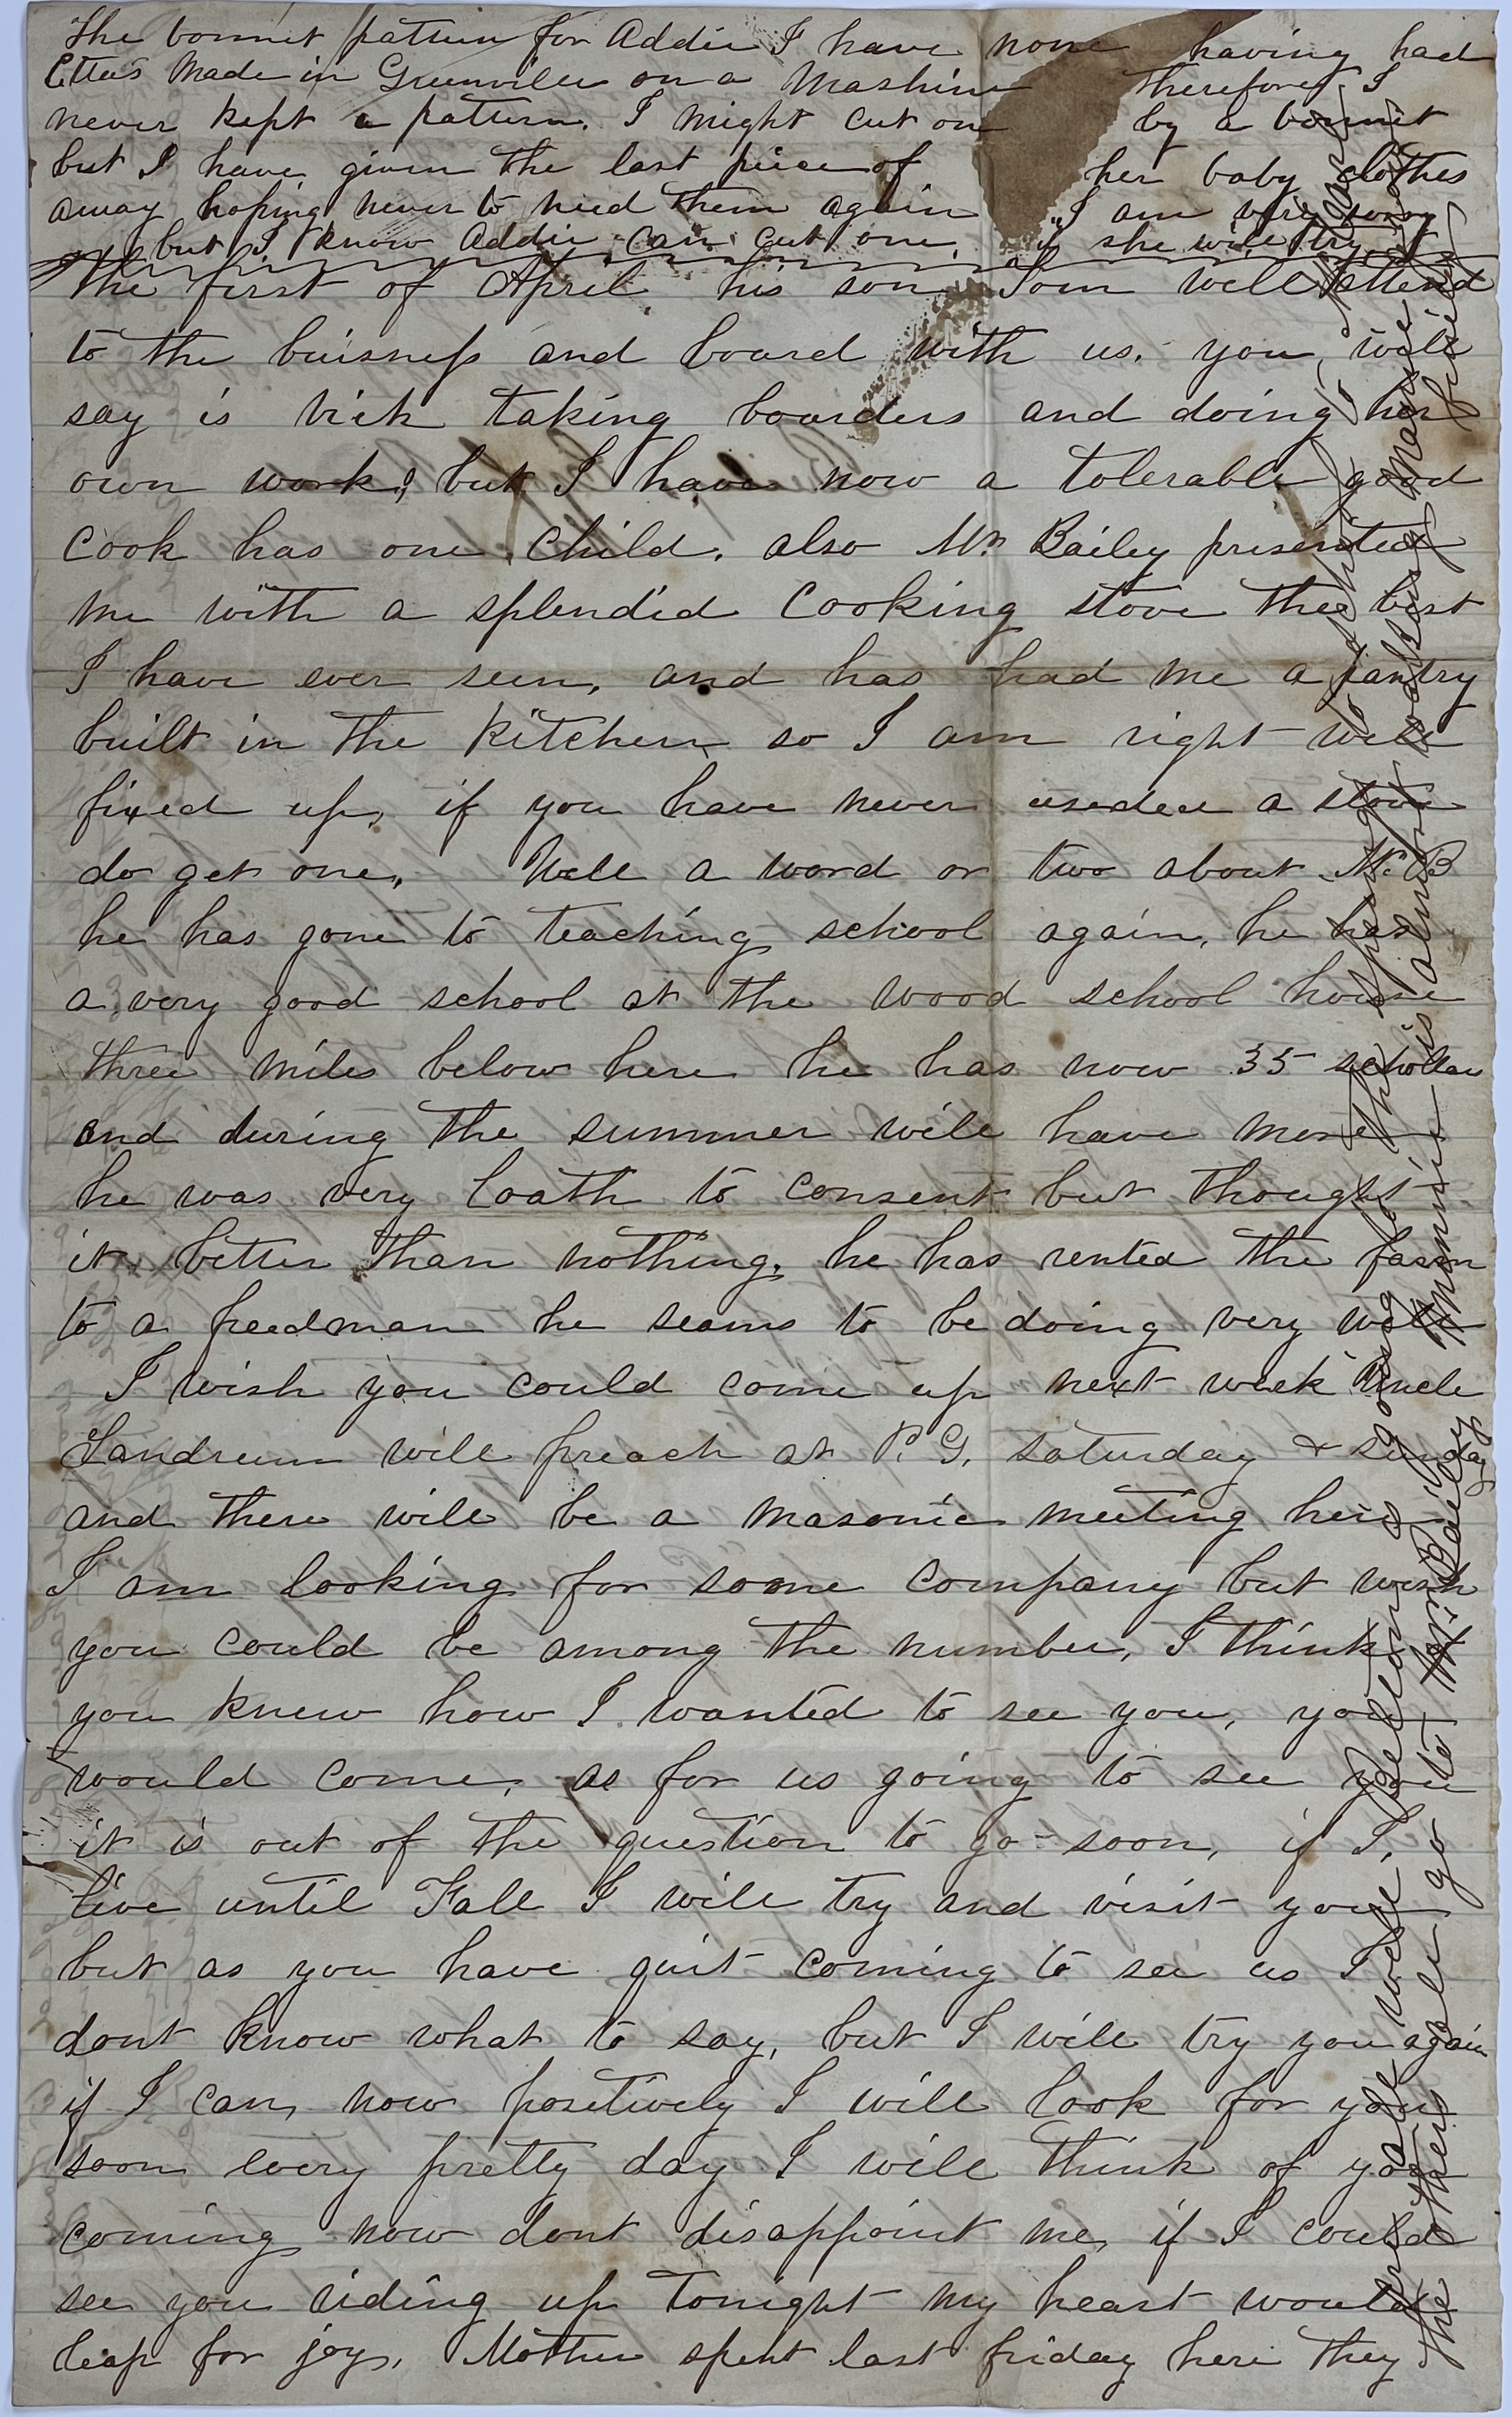 The bonnet pattern for Addie I have none having had
Etta's made in Greenville on a Mashine therefore I
never kept a pattern. I might cut one by a bonnet
but I have given the last piece of her baby clothes
away hoping never to need them again I am very sorry
but I know Addie can cut one if she will try
The first of April his son Tom will attend
to the buisness and board with us. you will
say is Vick taking boarders and doing her
own work, but I have now a tolerable good
Cook has one child. also Mr Bailey presented
me with a splendid Cooking stove the best
I have ever seen, and has had me a pantry
built in the kitchen so I am right well
fixed up, if you have never used a stove
do get one, Well a word or two about Mr. B
he has gone to teaching school again, he has
a very good school at the Wood school house
three miles below here he has now 35 schollars
and during the summer will have more
he was very loath to consent but thought
it better than nothing. he has rented the farm
to a freedman he seams to be doing very well
I wish you could come up next week Uncle
Landrum will preach at P. G. saturday & sunday
and there will be a masonic meeting here
I am looking for some company but wish
you could be among the number, I think
you knew how I wanted to see you, you
would come, as for us going to see you
it is out of the question to go soon, if I
live until Fall I will try and visit you
but as you have quit coming to see us I
dont know what to say, but I will try you again
if I can, now positively I will look for you
soon every pretty day I will think of you
coming now dont disappoint me, if I could
see you riding up tonight my heart would
leap for joy, Mother spent last friday here they
all well,
going to
The others all go to Mr. Bailey Minnie is almost